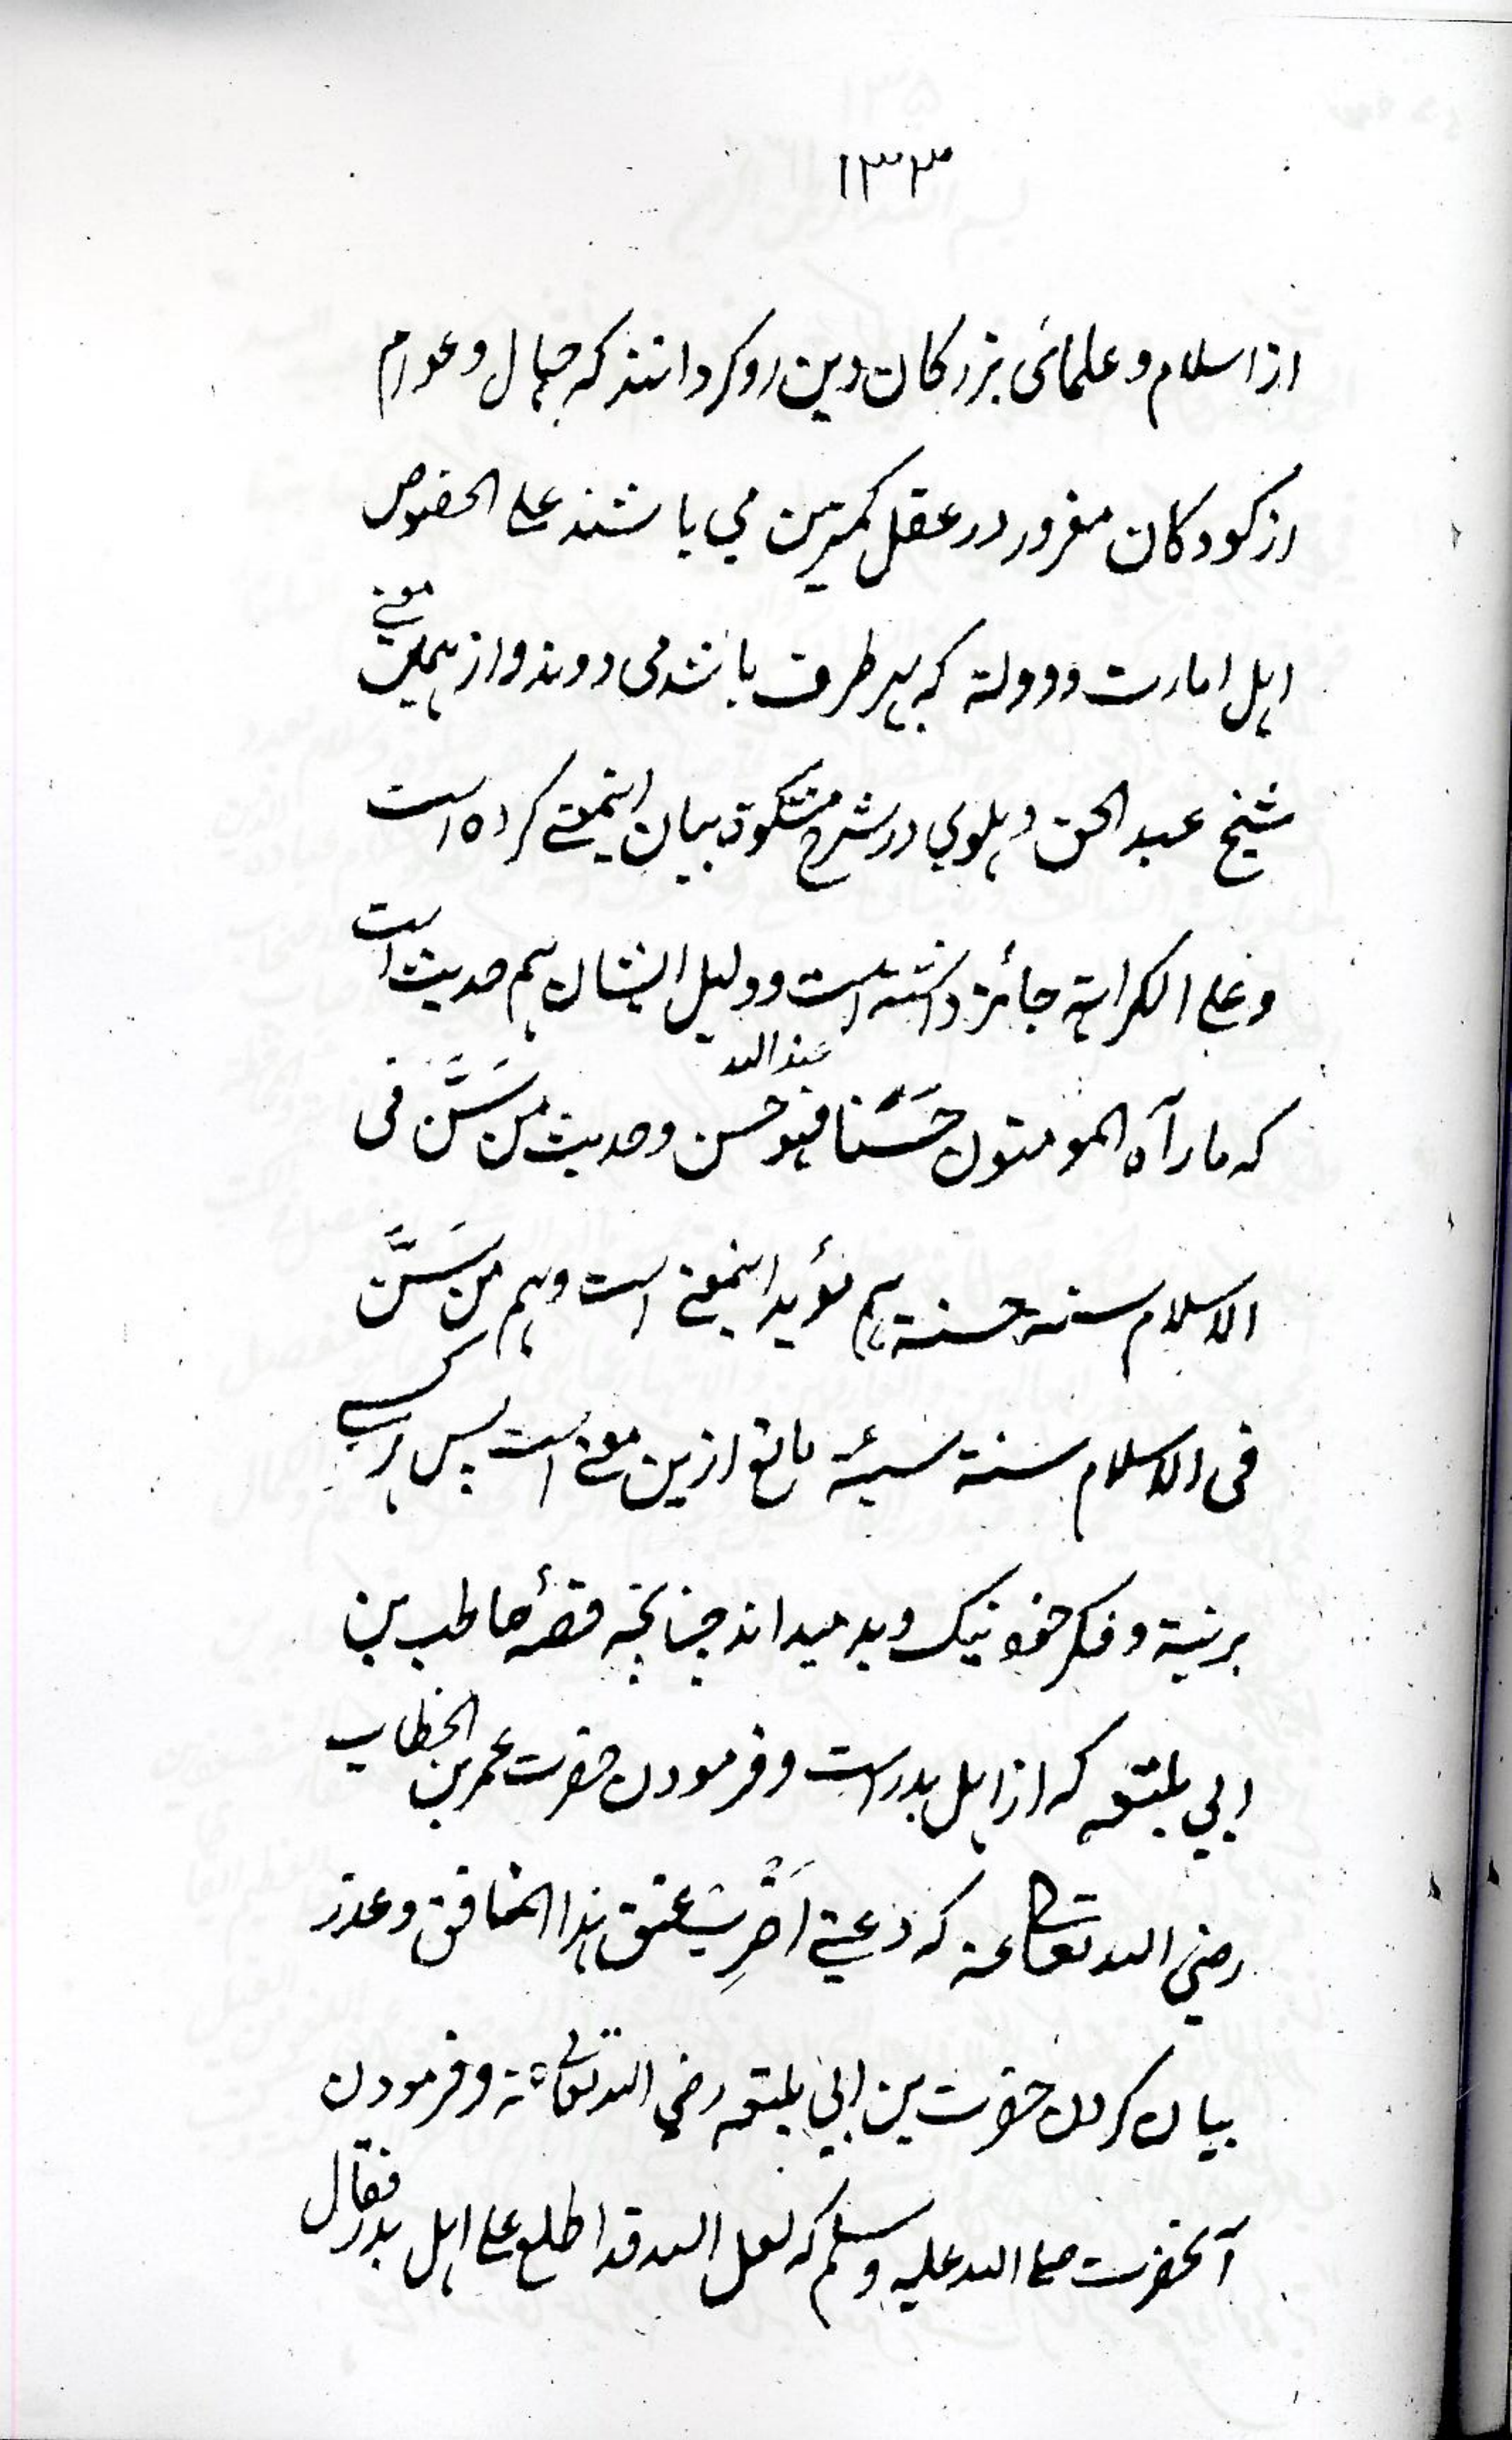 ۱۳۳
از اسلام و علمائی بزرکان دین روکردانند که جهال و عوام
از کودکان مغرور در عقل کمترین می باشند علی الخصوص
اہل امارت و دولة که ہر طرف باشد می روند و از ہمین معنے
شیخ عبد الحق دہلوی در شرح مشکوة بیان اینمعنے کرده است
و علی الکراہتہ جائز داشتہ است و دلیل ایشان ہم حدیث است
که ما رآه المومنون حَسَنًا فہو عند اللہ حسن و حدیث من سَنَّ فی
الاسلام سنة حسنة ہم مؤید اینمعنے است و ہم من سَنَّ
فی الاسلام سنة سیئة مانع ازین معنے است پس ہر کسے
بر نیة و فکر خود نیک و بد میداند چنانچہ قصۂ حاطب بن
ابی بلتعہ که از اہل بدر است و فرمودن حضرت عمر بن الخطاب
رضی اللہ تعالی عنہ که دعنی اَضْرِب عنق ہذا المنافق و عذر
بیان کردن حضرت بن ابی بلتعہ رضی اللہ تعالی عنہ و فرمودن
آنحضرت صلی اللہ علیہ و سلم که لعل اللہ قد اطلع علی اہل بدر فقال